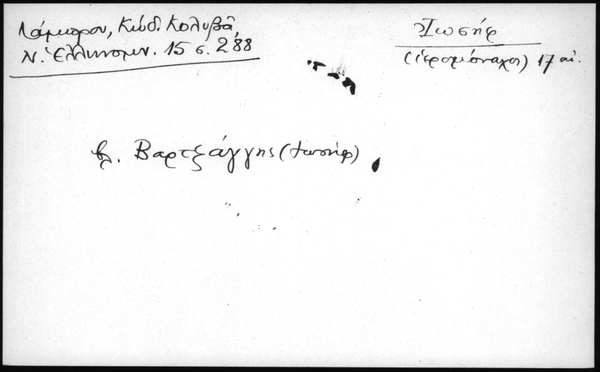 Λάμπρου, Κώδ. Κολυβᾶ,
Ν. Ἑλληνομν. 15 σ. 288
Ἰωσήφ
(ἱερομόναχος) 17 αἰ.
βλ. Βαρτζάγγης (Ἰωσήφ)